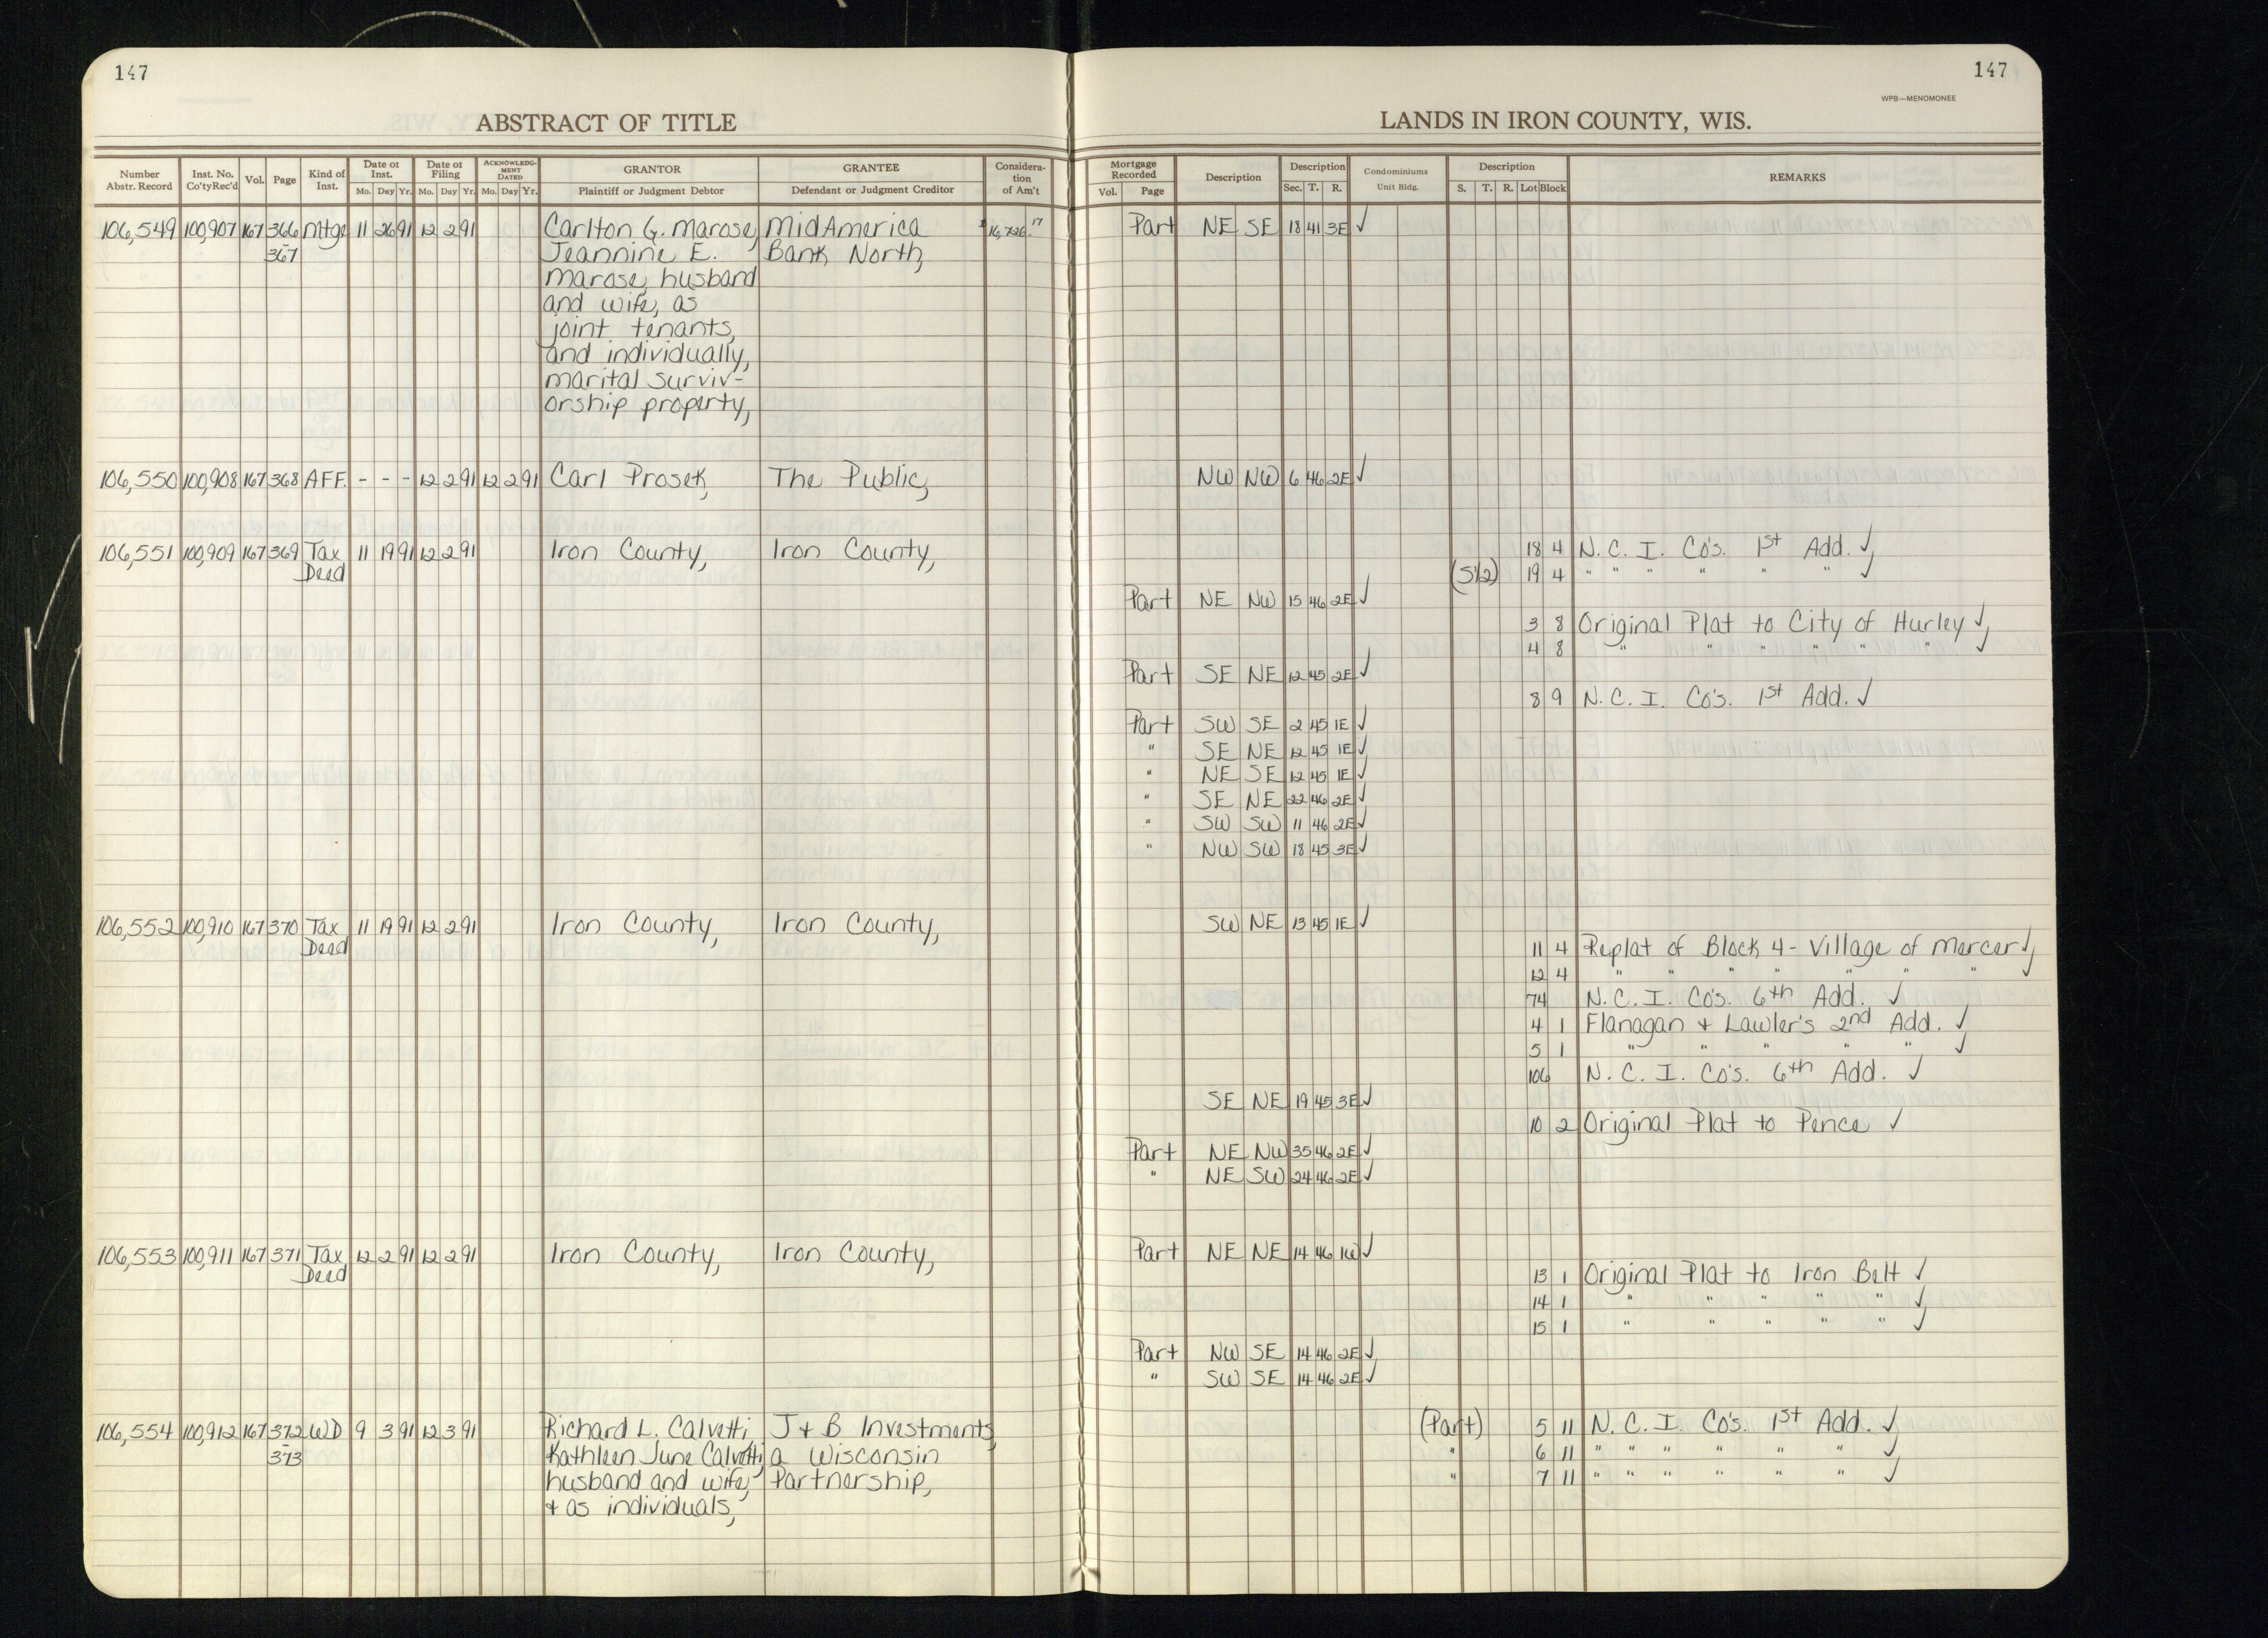 147
147
WPB—MENOMONEE
ABSTRACT OF TITLE
LANDS IN IRON COUNTY, WIS.
Number Abstr. Record Inst. No. Co'tyRec'd Vol. Page Kind of Inst. Date of Inst. Mo. Day Yr. Date of Filing Mo. Day Yr. ACKNOWLEDGMENT DATED Mo. Day Yr. GRANTOR Plaintiff or Judgment Debtor GRANTEE Defendant or Judgment Creditor Consideration of Am't
Mortgage Recorded Vol. Page Description Description Sec. T. R. Condominiums Unit Bldg. Description S. T. R. Lot Block REMARKS
106,549 100,907 167 366 Mtge 11 26 91 12 2 91 Carlton G. Marose, MidAmerica $16,726.17 Part NE SE 18 41 3E ✓
367 Jeannine E. Bank North,
Marose, husband
and wife, as
joint tenants,
and individually,
marital surviv-
orship property,
106,550 100,908 167 368 AFF. - - - 12 2 91 12 2 91 Carl Prosek, The Public, NW NW 6 46 2E ✓
106,551 100,909 167 369 Tax 11 19 91 12 2 91 Iron County, Iron County, 18 4 N. C. I. Co's. 1st Add. ✓,
Deed (S½) 19 4 " " " " " " ✓
Part NE NW 15 46 2E ✓
3 8 Original Plat to City of Hurley ✓,
4 8 " " " " " " ✓
Part SE NE 12 45 2E ✓
8 9 N. C. I. Co's. 1st Add. ✓
Part SW SE 2 45 1E ✓
" SE NE 12 45 1E ✓
" NE SE 12 45 1E ✓
" SE NE 22 46 2E ✓
" SW SW 11 46 2E ✓
" NW SW 18 45 3E ✓
106,552 100,910 167 370 Tax 11 19 91 12 2 91 Iron County, Iron County, SW NE 13 45 1E ✓
Deed 11 4 Replat of Block 4 - Village of Mercer ✓,
12 4 " " " " " " " ✓
74 N. C. I. Co's. 6th Add. ✓
4 1 Flanagan + Lawler's 2nd Add. ✓
5 1 " " " " " ✓
106 N. C. I. Co's. 6th Add. ✓
SE NE 19 45 3E ✓
10 2 Original Plat to Pence ✓
Part NE NW 35 46 2E ✓
" NE SW 24 46 2E ✓
106,553 100,911 167 371 Tax 12 2 91 12 2 91 Iron County, Iron County, Part NE NE 14 46 1W ✓
Deed 13 1 Original Plat to Iron Belt ✓
14 1 " " " " " ✓
15 1 " " " " " ✓
Part NW SE 14 46 2E ✓
" SW SE 14 46 2E ✓
106,554 100,912 167 372 WD 9 3 91 12 3 91 Richard L. Calvetti, J + B Investments, (Part) 5 11 N. C. I. Co's. 1st Add. ✓
373 Kathleen June Calvetti, a Wisconsin " 6 11 " " " " " " ✓
husband and wife, Partnership, " 7 11 " " " " " " ✓
+ as individuals,